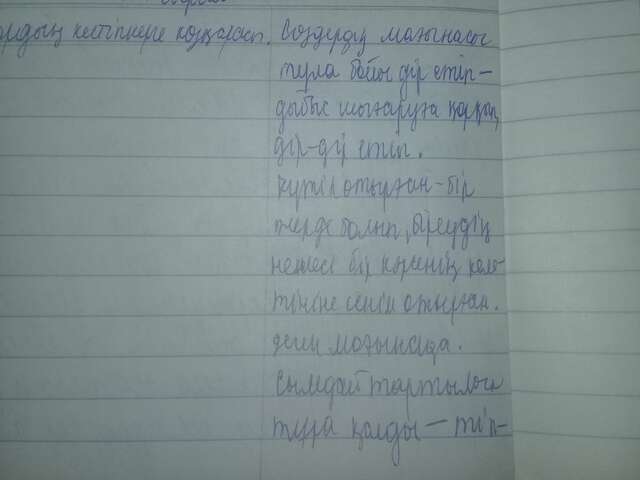 кейіпкерге көзқарасы. Сөздердің мағынасы
тұла бойы дір етіп –
дыбыс шығаруға қорқып,
дір-дір етіп.
күтіп отырған – бір
жерде болып, біреудің
немесе бір нәрсенің келе-
тініне сеніп отырған.
деген мағынада.
Сымдай тартылып
тұра қалды – тіп-